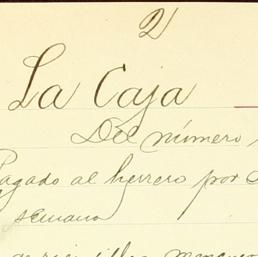 2
La Caja
Del número
Pagado al herrero por
semana